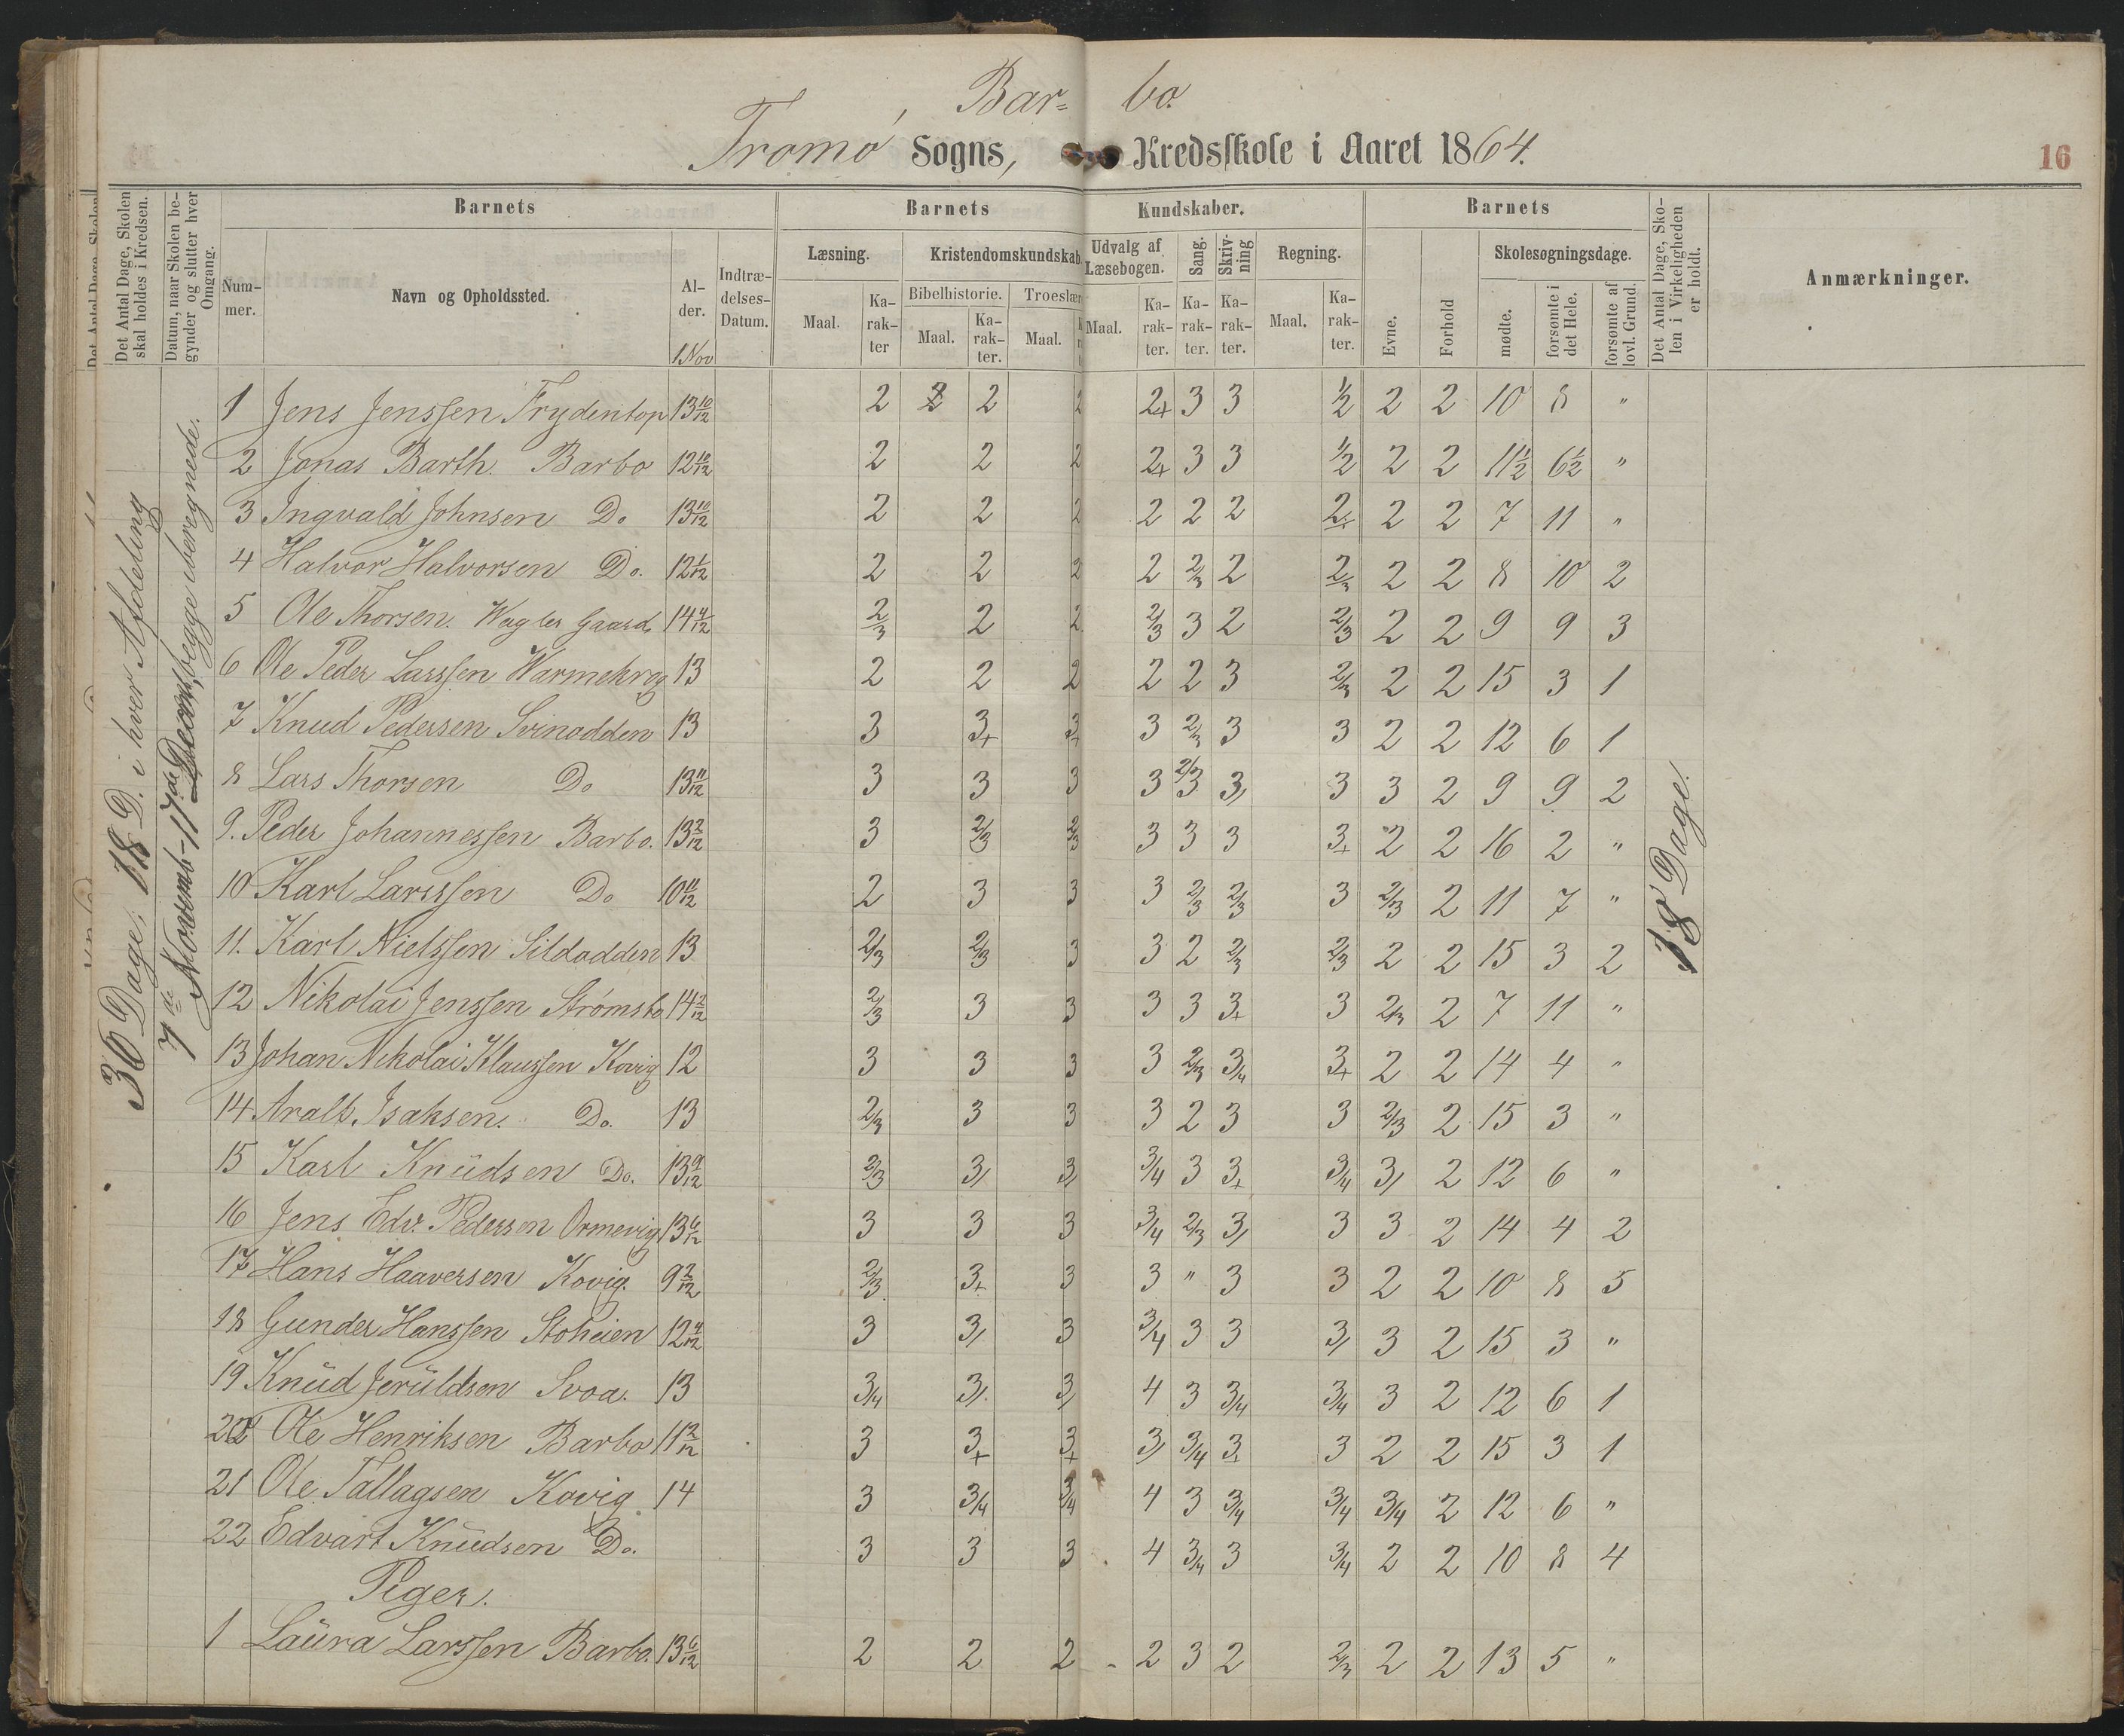 Bar= bo.
Tromø Sogns, Kredsskole i Aaret 1864.
16
Det Antal Dage, Skolen skal holdes i Kredsen.
Datum, naar Skolen begynder og slutter hver Omgang.
Barnets
Barnets Kundskaber.
Barnets
Det Antal Dage, Skolen i Virkeligheden er holdt.
Anmærkninger.
Nummer.
Navn og Opholdssted.
Alder.
1 Nov
Indtrædelses-Datum.
Læsning.
Kristendomskundskab.
Udvalg af Læsebogen.
Sang.
Skrivning
Regning.
Evne.
Forhold
Skolesøgningsdage.
Bibelhistorie.
Troeslær
Maal. Karakter Maal. Karakter. Maal. Maal. Karakter. Karakter. Karakter. Maal. Karakter.
mødte.
forsømte i det Hele.
forsømte af lovl. Grund.
36 Dage, 18 D. i hver Afdeling
7de Novemb-17de Decemb, begge iberegnede.
18 Dage.
1 Jens Jenssen Frydentop 13 10/12 2 2 2 2 2+ 3 3 1/2 2 2 10 8 "
2 Jonas Barth. Barbo 12 10/12 2 2 2 2+ 3 3 1/2 2 2 11½ 6½ "
3 Ingvald Johnsen Do 13 10/12 2 2 2 2 2 2 2+ 2 2 7 11 "
4 Halvor Halvorsen Do. 12 1/12 2 2 2 2 2/3 2 2/3 2 2 8 10 2
5 Ole Thorsen. Wagles Gaard 14 4/12 2/3 2 2 2/3 3 2 2/3 2 2 9 9 3
6 Ole Peder Larssen Warmekrog 13 2 2 2 2 2 3 2/3 2 2 15 3 1
7 Knud Pedersen Svinodden 13 3 3+ 3+ 3 2/3 3 3 2 2 12 6 1
8 Lars Thorsen Do 13 11/12 3 3 3 3 2/3 3/ 3 3 2 9 9 2
9. Peder Johannessen Barbo. 13 2/12 3 2/3 2/3 3 3 3 3+ 2 2 16 2 "
10 Karl Larsssen Do 10 11/12 2 3 3 3 2/3 2/3 3 2/3 2 11 7 "
11. Karl Nielssen Sildodden 13 2/3 2/3 3 3 2 2/3 2/3 2 2 15 3 2
12 Nikolai Jenssen Strømsbo 14 2/12 2/3 3 3 3 3 3+ 3 2/3 2 7 11 "
13 Johan Nikolai Klaussen Kovig 12 3 3 3 3 2/3 3/4 3+ 2 2 14 4 "
14 Aralb. Isaksen. Do. 13 2/3 3 3 3 2 3 3 2/3 2 15 3 "
15 Karl Knüdsen Do. 13 9/12 2/3 3/ 3/ 3/4 3 3+ 3/4 3/ 2 12 6 "
16 Jens Edv. Pedersen Ormevig 13 6/12 3 3 3 3/4 2/3 3/ 3 3 2 14 4 2
17 Hans Haaversen Kovig. 9 2/12 2/3 3+ 3 3 " 3 3 2 2 10 8 5
18 Gunder Hanssen Stoheien 12 4/12 3 3/ 3 3/4 3 3 3/ 3 2 15 3 "
19 Knüd Jerüldsen Svoa. 13 3/4 3/ 3/ 4 3 3/4 3/4 3 2 12 6 1
20 Ole Henriksen Barbo 11 2/12 3 3+ 3+ 3/ 3/4 3+ 3 2 2 15 3 1
21 Ole Tallagsen Kovig 14 3 3/4 3/4 4 3 3/4 3/4 3/4 2 12 6 "
22 Edvart Knüdsen Do. 3 3 3 4 3/4 3 3/4 2 2 10 8 4
Piger.
1 Laüra Larssen Barbo. 13 6/12 2 2 2 2 3 2 2/3 2 2 13 5 "